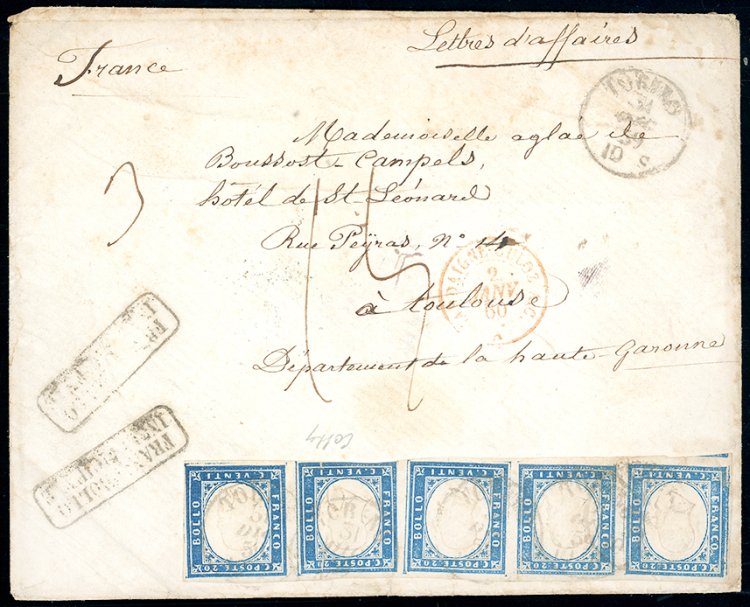 Lettres d'affaires
France
TORINO
31
DIC
59
10 S
Mademoiselle aglaé de
Boussost-Campels,
hôtel de St Léonard
Rue Peyras, No 14
à toulouse
Département de la haute garonne
3
15
2
JANV
60
FRANCOBOLLO
INSUFFICIENTE
FRANCOBOLLO
INSUFFICIENTE
C. VENTI
BOLLO
FRANCO
C. POSTE 20
C. VENTI
BOLLO
FRANCO
C. POSTE 20
C. VENTI
BOLLO
FRANCO
C. POSTE 20
C. VENTI
BOLLO
FRANCO
C. POSTE 20
C. VENTI
BOLLO
FRANCO
C. POSTE 20